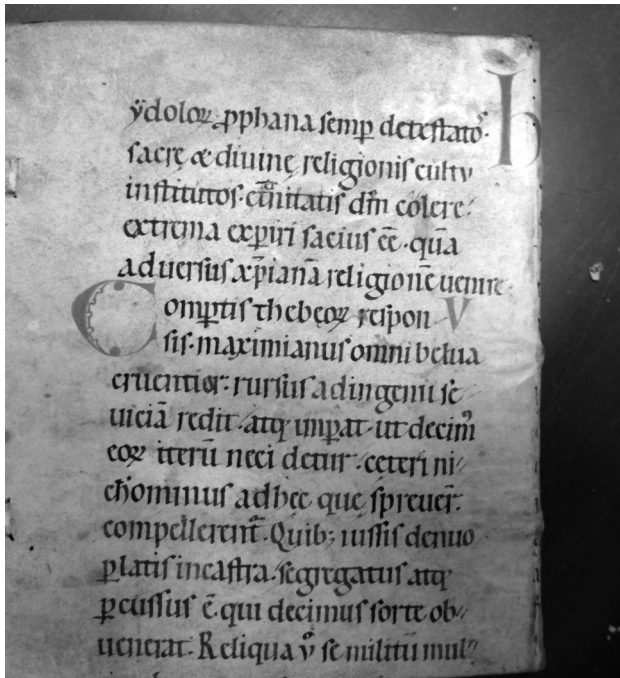 ydoloꝝ ꝓphana semꝑ detestatoˢ· h
sacrę & diuinę religionis cultu
institutos· &̄nitatis dm̄ colere·
extrema exꝑiri sacius eē· quā
aduersus xp̄ianā religionē uenire
Comꝑtis thebeoꝝ respon V
sis· maximianus omni belua
cruentior· rursus ad ingenii sę
uiciā redit· atq; imꝑat· ut decim᷒
eoꝝ iterū neci detur· ceteri ni
ch̄ominus ad hęc quę spreuer̄·
compellerent̄· Quib; iussis denuo
ꝑlatis in castra· segregatus atq;
ꝑcussus ē· qui decimus sorte ob
uenerat· Reliqua ů se militū mul